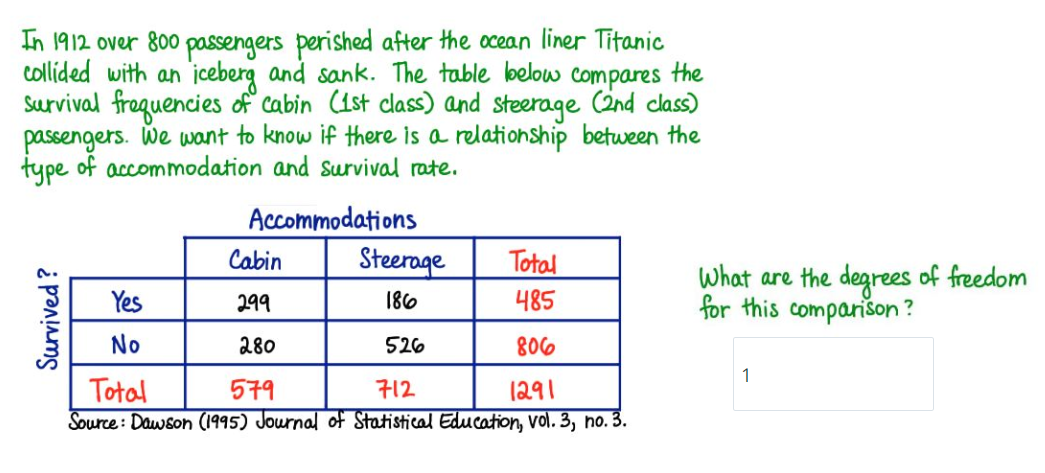 In 1912 over 800 passengers perished after the ocean liner Titanic
collided with an iceberg and sank. The table below compares the
survival frequencies of cabin (1st class) and steerage (2nd class)
passengers. We want to know if there is a relationship between the
type of accommodation and survival rate.
Accommodations
Cabin Steerage Total
Survived?
Yes 299 186 485
No 280 526 806
Total 579 712 1291
Source: Dawson (1995) Journal of Statistical Education, vol. 3, no. 3.
What are the degrees of freedom
for this comparison?
1